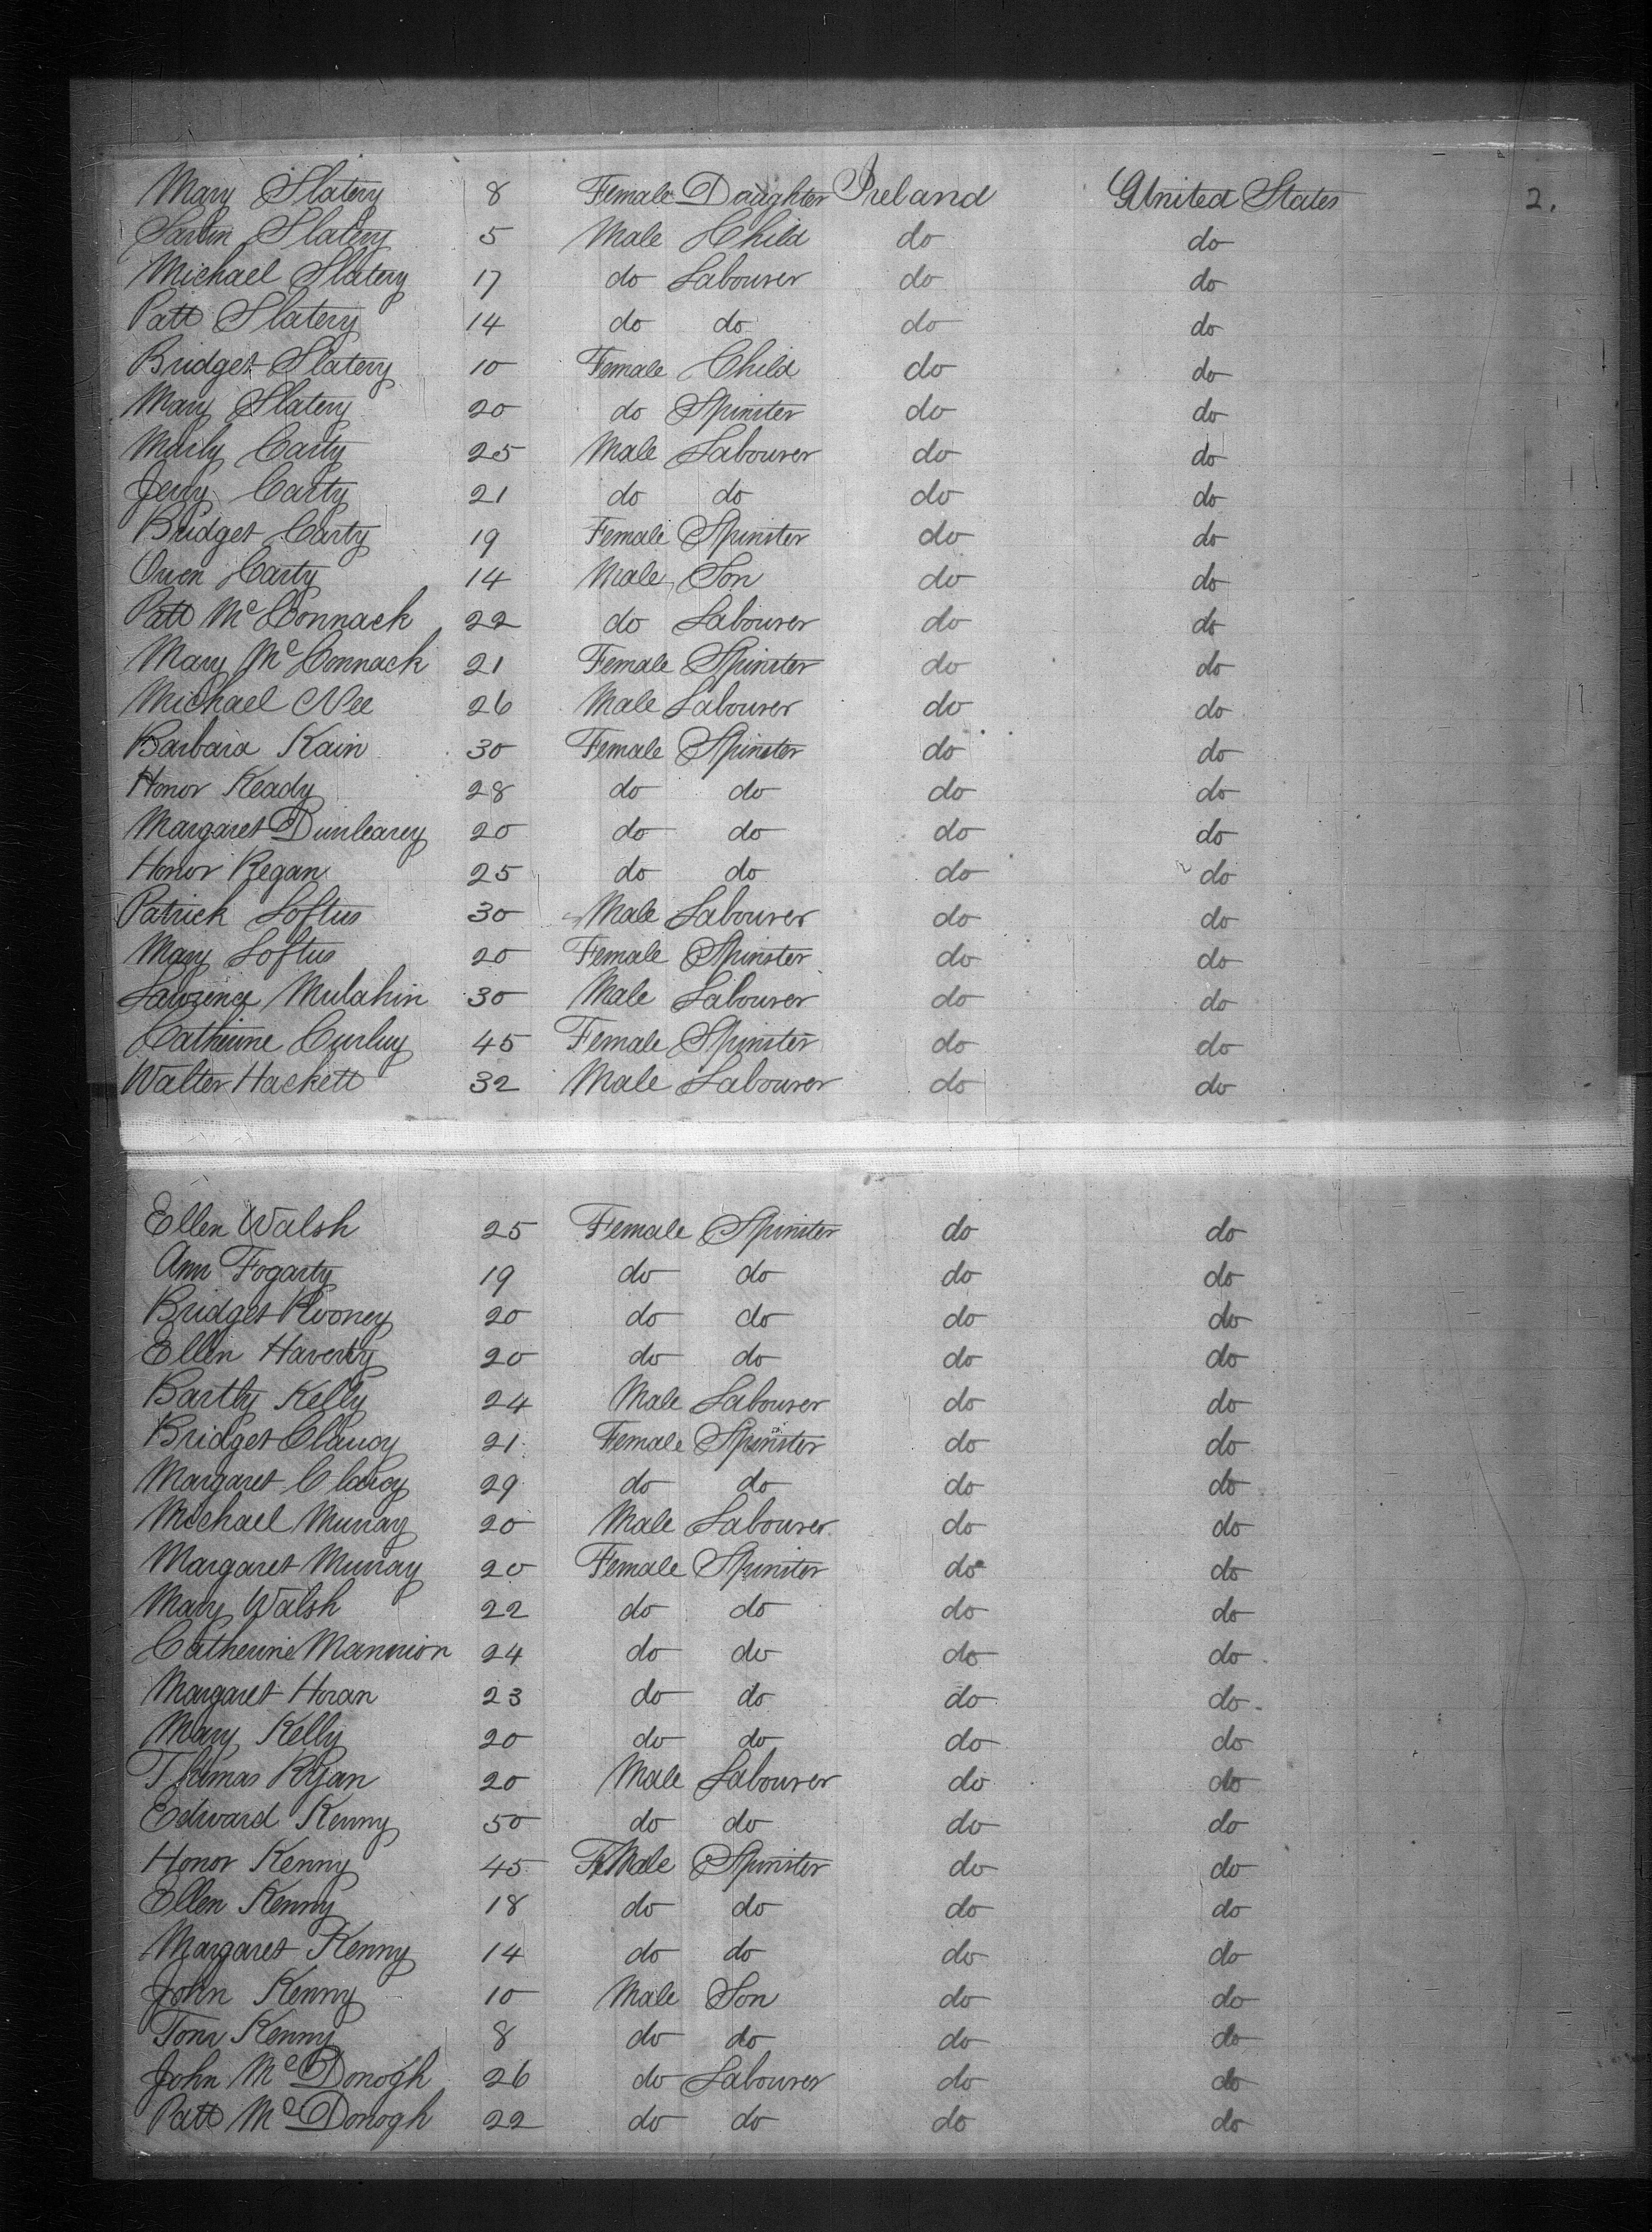 Mary Slatery 8 Female Daughter Ireland United States 2.
Slatery 5 Male Child do do
Michael Slatery 17 do Labourer do do
Patt Slatery 14 do do do do
Bridget Slatery 10 Female Child do do
Mary Slatery 20 do Spinster do do
Carty 25 Male Labourer do do
Jerry Carty 21 do do do do
Bridget Carty 19 Female Spinster do do
Owen Carty 14 Male Son do do
Patt McConnack 22 do Labourer do do
Mary McConnack 21 Female Spinster do do
Michael Nee 26 Male Labourer do do
Barbara Kain 30 Female Spinster do do
Honor Keady 28 do do do do
Margaret Dunleavey 20 do do do do
Honor Regan 25 do do do do
Patrick Loftus 30 Male Labourer do do
Mary Loftus 20 Female Spinster do do
Lawrence Mulahin 30 Male Labourer do do
Catherine Curluy 45 Female Spinster do do
Walter Hackett 32 Male Labourer do do
Ellen Walsh 25 Female Spinster do do
Ann Fogarty 19 do do do do
Bridget Rooney 20 do do do do
Ellen Haverty 20 do do do do
Bartly Kelly 24 Male Labourer do do
Bridget Clancy 21 Female Spinster do do
Margaret 29 do do do do
Michael Murray 20 Male Labourer do do
Margaret Murray 20 Female Spinster do do
Mary Walsh 22 do do do do
Catherine Mannion 24 do do do do
Margaret Horan 23 do do do do
Mary Kelly 20 do do do do
Thomas Ryan 20 Male Labourer do do
Edward Kenny 50 do do do do
Honor Kenny 45 FeMale Spinster do do
Ellen Kenny 18 do do do do
Margaret Kenny 14 do do do do
John Kenny 10 Male Son do do
Tom Kenny 8 do do do do
John McDonogh 26 do Labourer do do
Patt McDonogh 22 do do do do